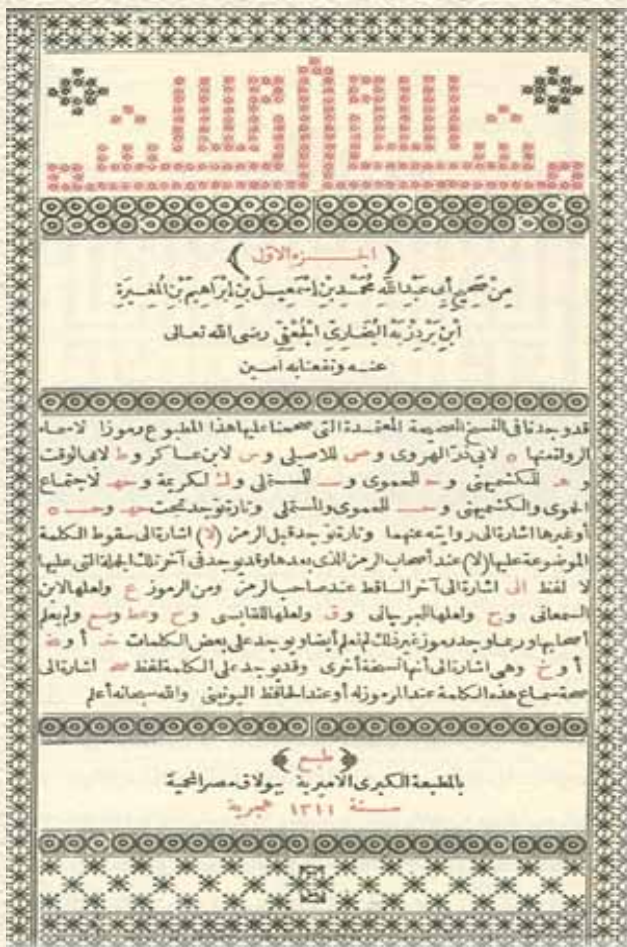 ﴿ الجزء الاول ﴾
مِنْ صَحِيحِ أَبِي عَبْدِ اللهِ مُحَمَّدِ بْنِ اِسْمٰعِيلَ بْنِ اِبْرَاهِيمَ بْنِ الْمُغِيرَةِ
ابْنِ بَرْدِزْبَهْ الْبُخَارِيِّ الْجُعْفِيِّ رضى الله تعالى
عنه ونفعنا به امين
قد وجدنا فى النسخ الصحيحة المعتمدة التى صححنا عليها هذا المطبوع رموزا لاسماء
الرواة منها ه لابى ذر الهروى و ص للاصيلى و س لابن عساكر و ط لابى الوقت
و هـ للكشميهنى و حـ للحموى و ستـ للمستملى و ك لكريمة و حهـ لاجتماع
الحموى والكشميهنى و حسـ للحموى والمستملى وتارة توجد تحت حهـ و حسـ ه
أو غيرها اشارة الى روايته عنهما وتارة توجد قبل الرمز (لا) اشارة الى سقوط الكلمة
الموضوعة عليها (لا) عند أصحاب الرمز الذى بعدها وقد يوجد فى آخر تلك الجملة التى عليها
لا لفظ الى اشارة الى آخر الساقط عند صاحب الرمز ومن الرموز ع ولعلها لابن
السمعانى و ج ولعلها للجرجانى و ق ولعلها للقابسى و ح و عط و صع ولم يعلم
أصحابها وربما وجد رموز غير ذلك لم تعلم أيضا ويوجد على بعض الكلمات خـ أو خة
أو خ وهى اشارة الى أنها نسخة أخرى وقد يوجد على الكلمة لفظ صح اشارة الى
صحة سماع هذه الكلمة عند المرموز له أو عند الحافظ اليونينى والله سبحانه أعلم
﴿ طبع ﴾
بالمطبعة الكبرى الاميرية ببولاق مصر المحمية
سنة ١٣١١ هجرية